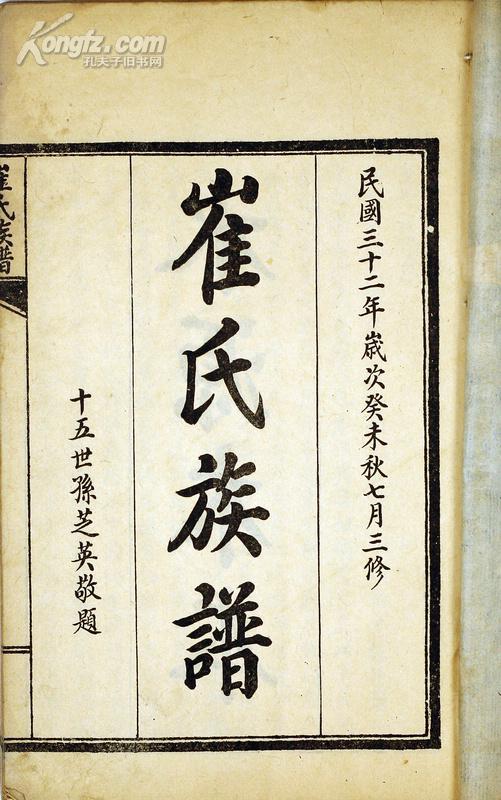 Kongfz.com
孔夫子旧书网
民國三十二年歲次癸未秋七月三修
崔氏族譜
十五世孫芝英敬題
崔氏族譜